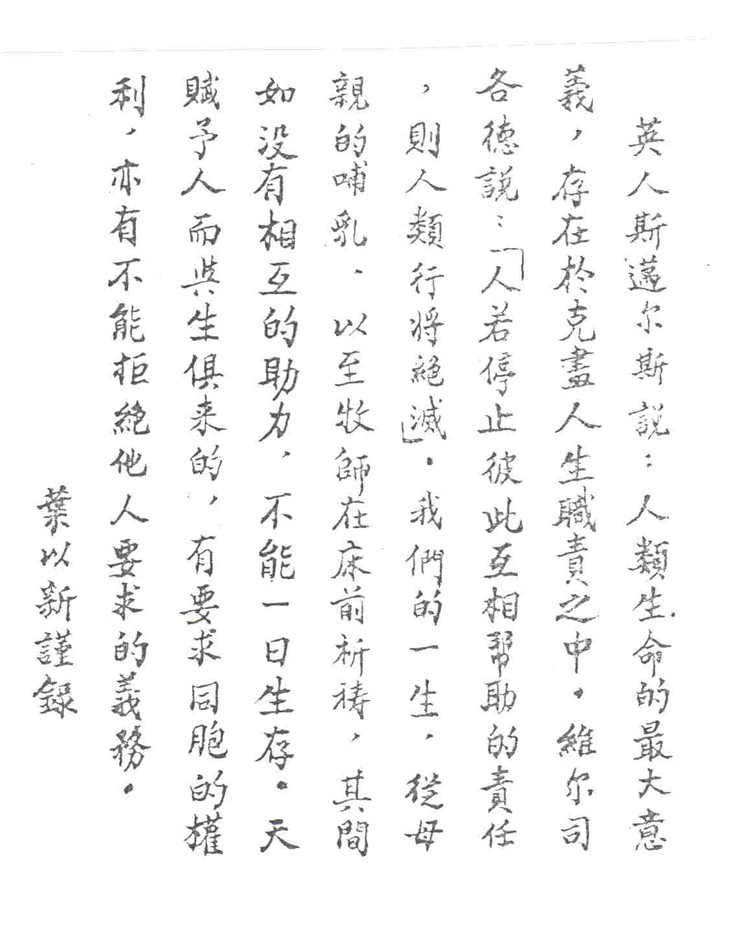 英人斯邁尔斯説：人類生命的最大意
義，存在於克盡人生職責之中。維尔司
各德説：「人若停止彼此互相帮助的責任
，則人類行将絕滅」。我們的一生，從母
親的哺乳、以至牧師在床前祈祷，其間
如没有相互的助力，不能一日生存。天
賦予人而與生俱来的，有要求同胞的權
利，亦有不能拒絕他人要求的義務。
葉以新謹録